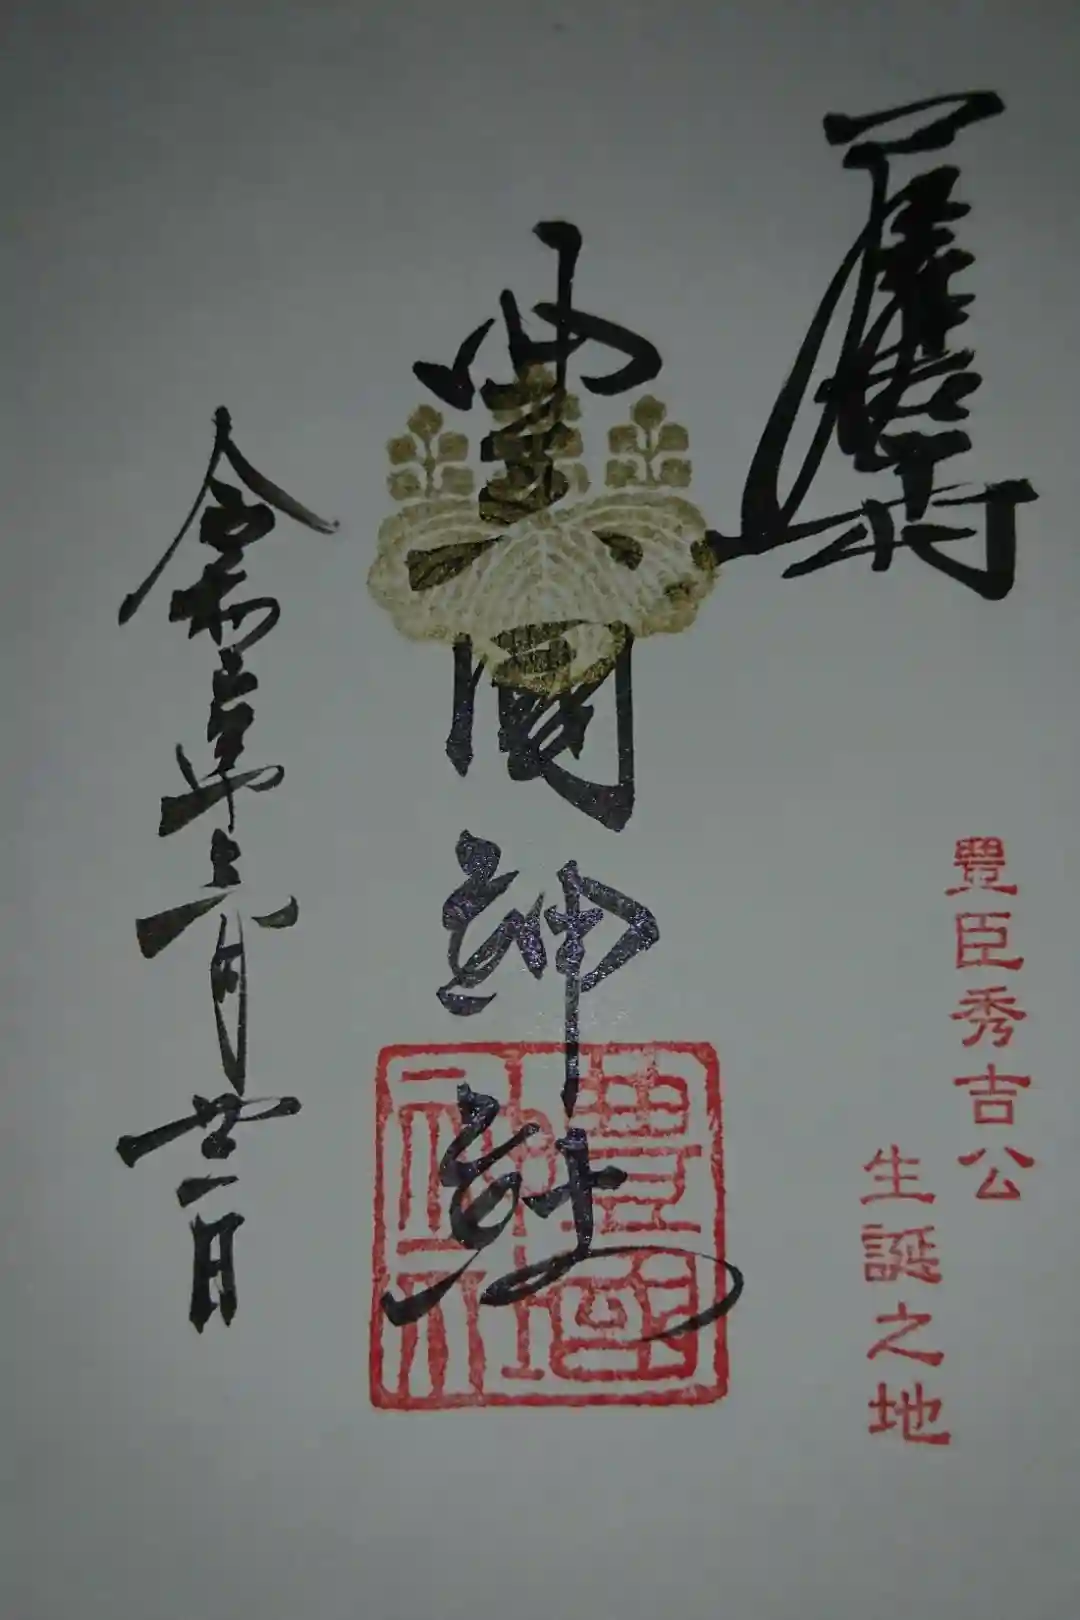 豊臣秀吉公
生誕之地
豊國神社
豊國神社
令和五年六月廿一日